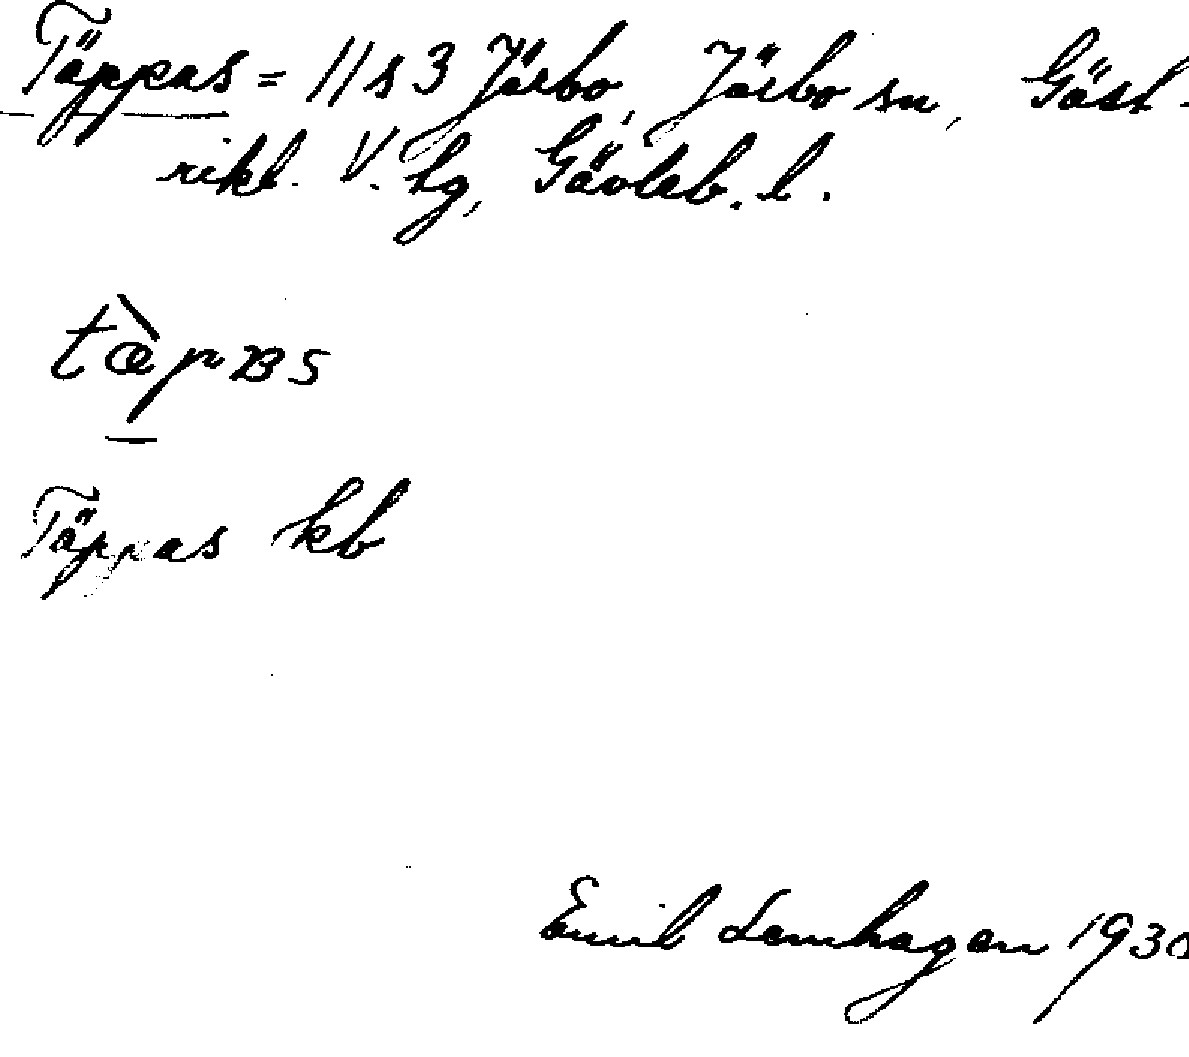 Täppas = 11 s 3 Järbo, Järbo sn, Gäst-
rikl. V. hg, Gävleb. l.
tæ̀pʙs
Täppas kb
Emil Lamhagen 1930